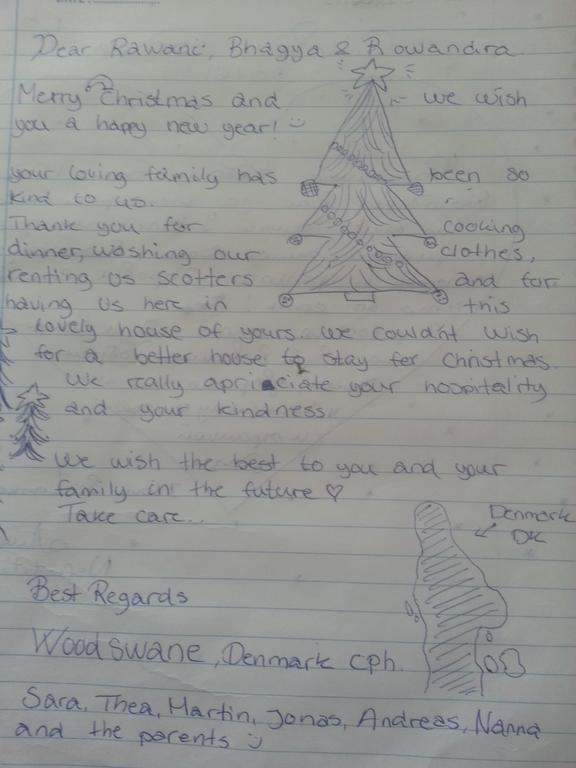 Dear Rawani, Bhagya & Rowandra
Merry Christmas and we wish
you a happy new year! :)
your loving family has been so
kind to us.
Thank you for cooking
dinner, washing our clothes,
renting us scotters and for
having us here in this
lovely house of yours. We couldn't wish
for a better house to stay for Christmas.
We really apriciate your hospitality
and your kindness
We wish the best to you and your
family in the future ♡
Take care..
Denmark
DK
Best Regards
Woodswane, Denmark cph.
Sara, Thea, Martin, Jonas, Andreas, Nanna
and the parents :)